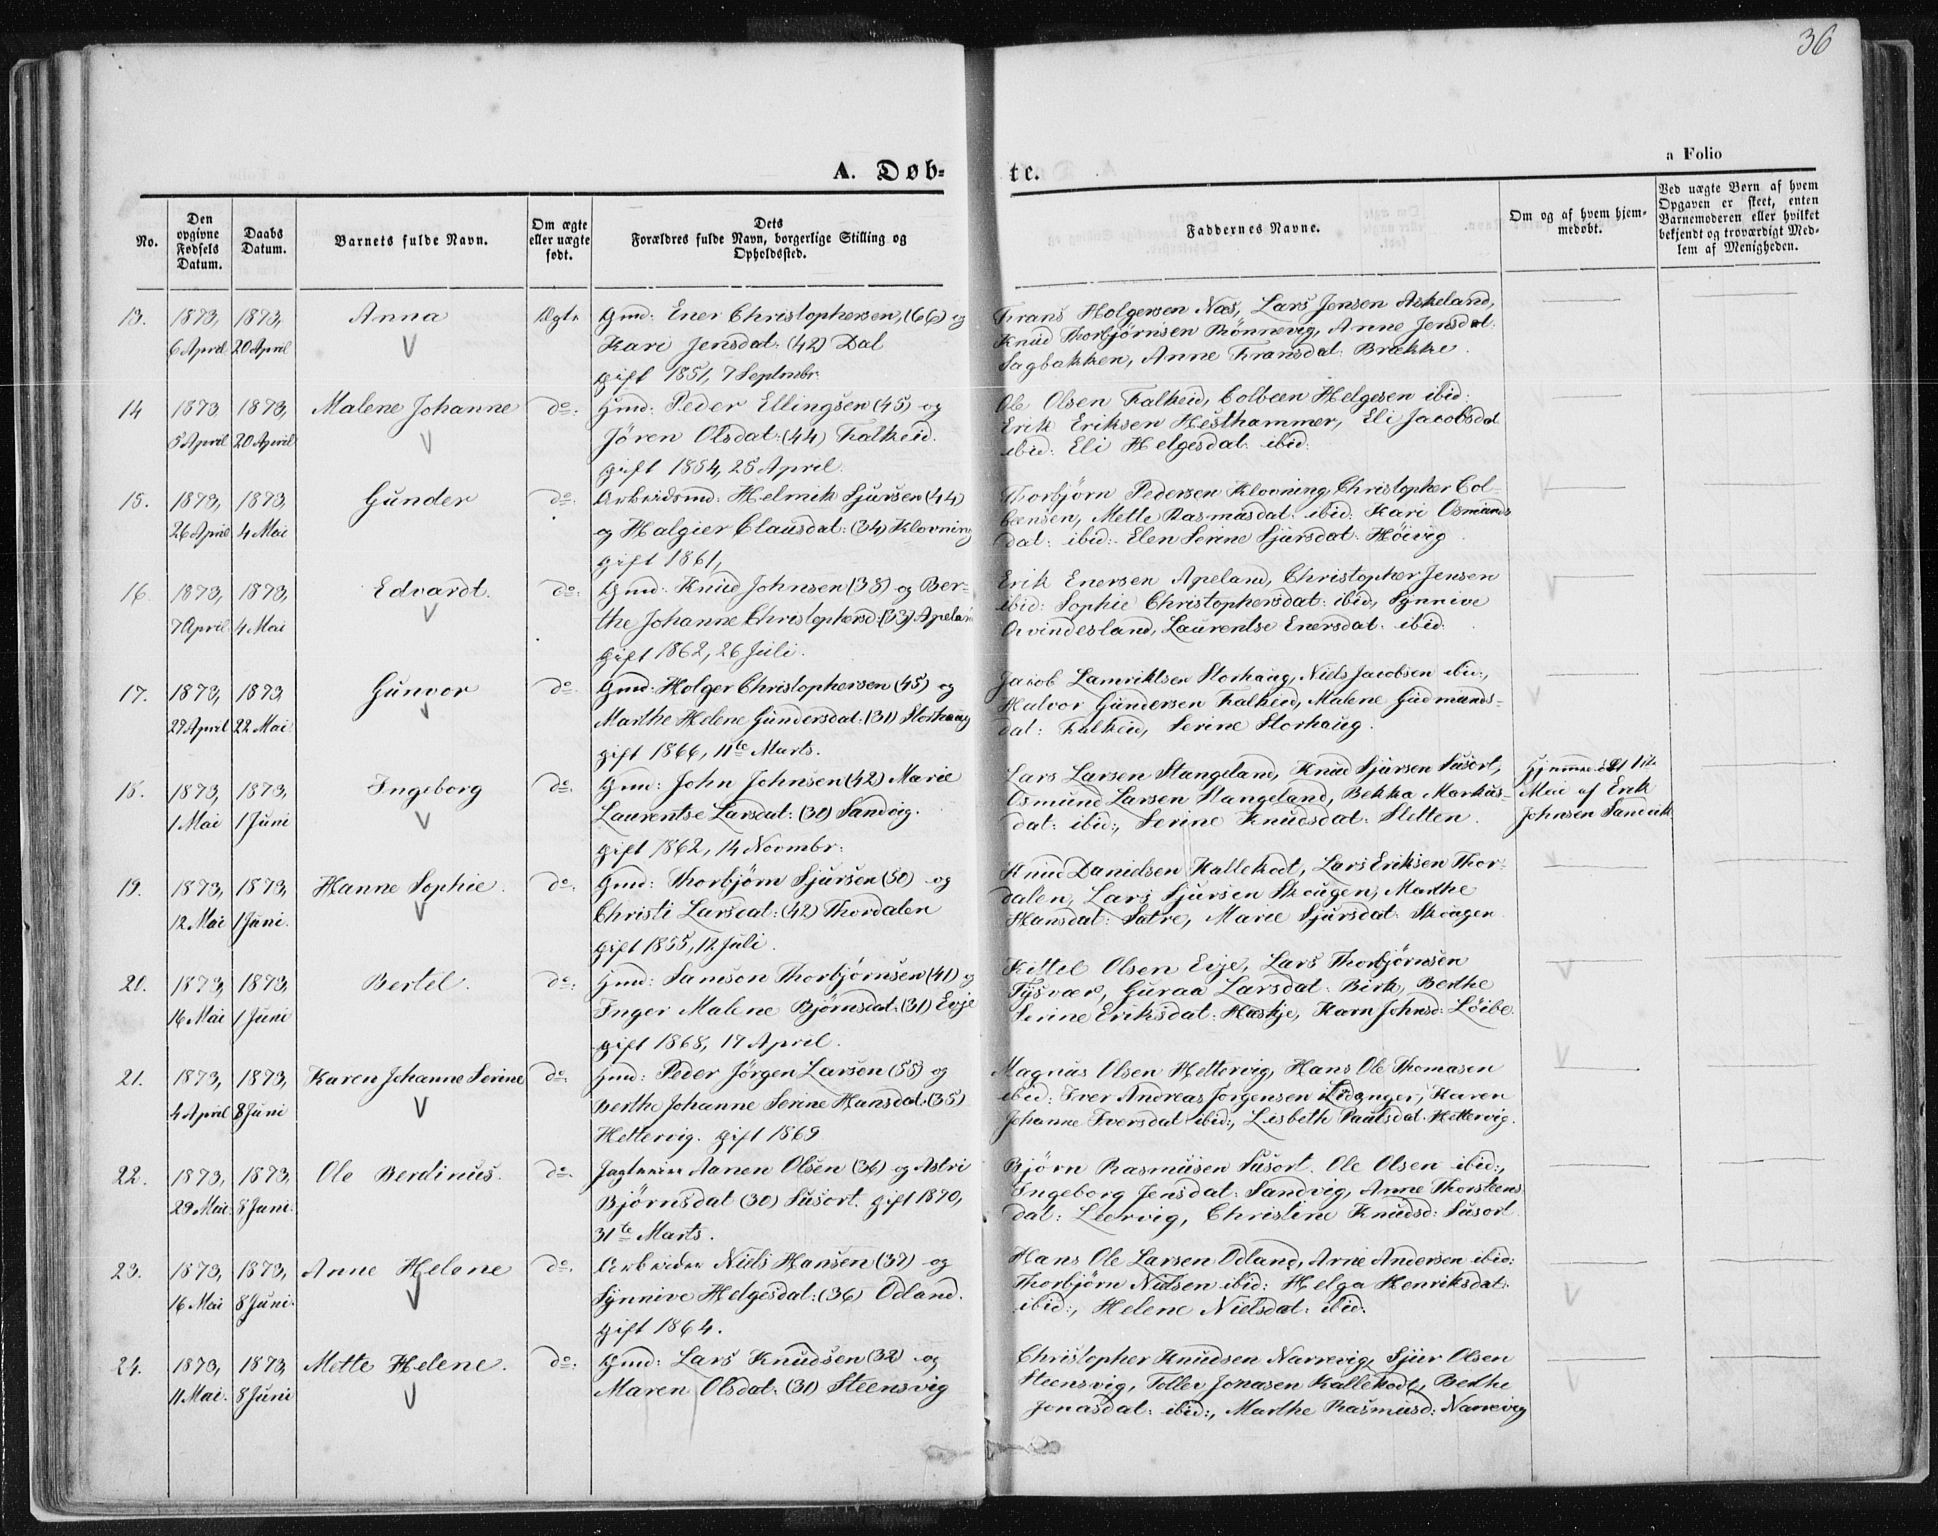 36
a Folio
A. Døb-
te.
No.
Den opgivne Fødsels Datum.
Daabs Datum.
Barnets fulde Navn.
Om ægte eller uægte født.
Dets Forældres fulde Navn, borgerlige Stilling og Opholdssted.
Faddernes Navne.
Om og af hvem hjem-medøbt.
Ved uægte Børn af hvem Opgaven er skeet, enten Barnemoderen eller hvilket bekjendt og troværdigt Med-lem af Menigheden.
13. 1873, 6 April 1873, 20 April Anna Ægte
Gmd: Ener Christophersen, (66) og
Kari Jensdat: (42) Dal
gift 1851, 7 Septmbr.
Frans Holgersen Næs, Lars Jensen Askeland,
Knud Thorbjørnsen Rönnevig, Anne Jensdat:
Sagbakken, Anne Fransdat: Brække.
14 1873 5 April 1873, 20 April Malene Johanne do:
Gmd: Peder Ellingsen (45) og
Jören Olsdat: (44) Falkeid.
gift 1854, 25 April.
Ole Olsen Falkeid, Colbeen Helgesen ibid:
Erik Eriksen Hesthammer, Eli Jacobsdat
ibid: Eli Helgesdat: ibid:
15. 1873, 26 April 1873, 4 Mai Gunder do:
Arbeidsmd: Helmik Sjursen (44)
og Halgier Clausdat: (34) Klovning
gift 1861,
Thorbjörn Pedersen Klovning, Christopher Col-
beensen, Mette Rasmusdat: ibid: Kari Osmunds
dat: ibid: Elen Serine Sjursdat: Höivig.
16. 1873, 7 April 1873, 4 Mai Edvardt. do:
Gmd: Knud Johnsen (38) og Ber-
the Johanne Christophersd: (33) Apeland
gift 1862, 26 Juli.
Erik Enersen Apeland, Christopher Jensen
ibid: Sophie Christophersdat: ibid, Synnive
Övindesland, Laurentse Enersdat: ibid:
17. 1873, 27 April 1873 22 Mai Gunvor do:
Gmd: Holger Christophersen (45) og
Marthe Helene Gundersdat: (31) Storhaug
gift 1866, 11te Marts.
Jacob Lamriktsen Storhaug, Niels Jacobsen ibid:,
Halvor Gundersen Falkeid, Malene Gudmunds-
dat: Falkeid, Serine Storhaug.
18. 1873, 1 Mai 1873, 1 Juni Ingeborg do:
Gmd: John Johnsen (42) Marie
Laurentse Larsdat: (30) Sandvig.
gift 1862, 14 Novmbr:
Lars Larsen Stangeland, Knud Sjursen Susort,
Osmund Larsen Stangeland, Bekka Markus-
dat: ibid:, Serine Knudsdat: Sletten.
Mai af Erik
Johnsen Sandvik
19. 1873, 12 Mai 1873, 1 Juni. Hanne Sophie. do:
Gmd: Thorbjörn Sjursen (50) og
Christi Larsdat: (42) Thordalen
gift 1855, 12 Juli.
Knud Danielsen Kallekodt, Lars Eriksen Thor-
dalen, Lars Sjursen Skougen, Marthe
Hansdat: Sætre, Marie Sjursdat: Skougen
20. 1873, 16 Mai 1873, 1 Juni Bertel. do:
Gmd: Samson Thorbjörnsen (41) og
Inger Malene Björnsdat: (31) Eeje
gift 1868, 17 April.
Kittel Olsen Eeje, Lars Thorbjörnsen
Tysvær, Guraa Larsdat: Birk, Berthe
Serine Eriksdat: Haskje, Karn Johnsd: Löibe.
21. 1873, 4 April 1873, 8 Juni Karen Johanne Serine do:
Gmd: Peder Jörgen Larsen (55) og
Berthe Johanne Serine Hansdat: (35)
Hettervig. gift 1869
Magnus Olsen Hettervig, Hans Ole Thomasen
ibid: Iver Andreas Jorgensen Lidanger, Karen
Johanne Iversdat ibid:, Lisbeth Paulsdat. Hettervig.
22. 1873, 29 Mai 1873, 8 Juni. Ole Berdinus. do:
Aanen Olsen (36) og Astri
Björnsdat (30) Susort. gift 1870,
31te Marts.
Björn Rasmusen Susort. Ole Olsen ibid:,
Ingeborg Jensdat: Sandvig, Anne Thorsteens
dat: Leervig, Christine Knudsd: Susort.
23. 1873, 16 Mai 1873, 8 Juni. Anne Helene do:
Arbeider Niels Hansen (37) og
Synnive Helgesdat: (36) Odland.
gift 1864.
Hans Ole Larsen Odland, Arne Andersen ibid:
Thorbjörn Nielsen ibid: Helga Henriksdat:
ibid:, Helene Nielsdat: ibid:
24. 1873, 11 Mai. 1873 8 Juni Mette Helene. do:
Gmd: Lars Knudsen (32) og
Maren Olsdat: (31) Steensvig
Christopher Knudsen Narrevig, Sjur Olsen
Steensvig, Tollev Jonasen Kallekodt, Berthe
Jonasdat: ibid:, Marthe Rasmusd: Narrevig